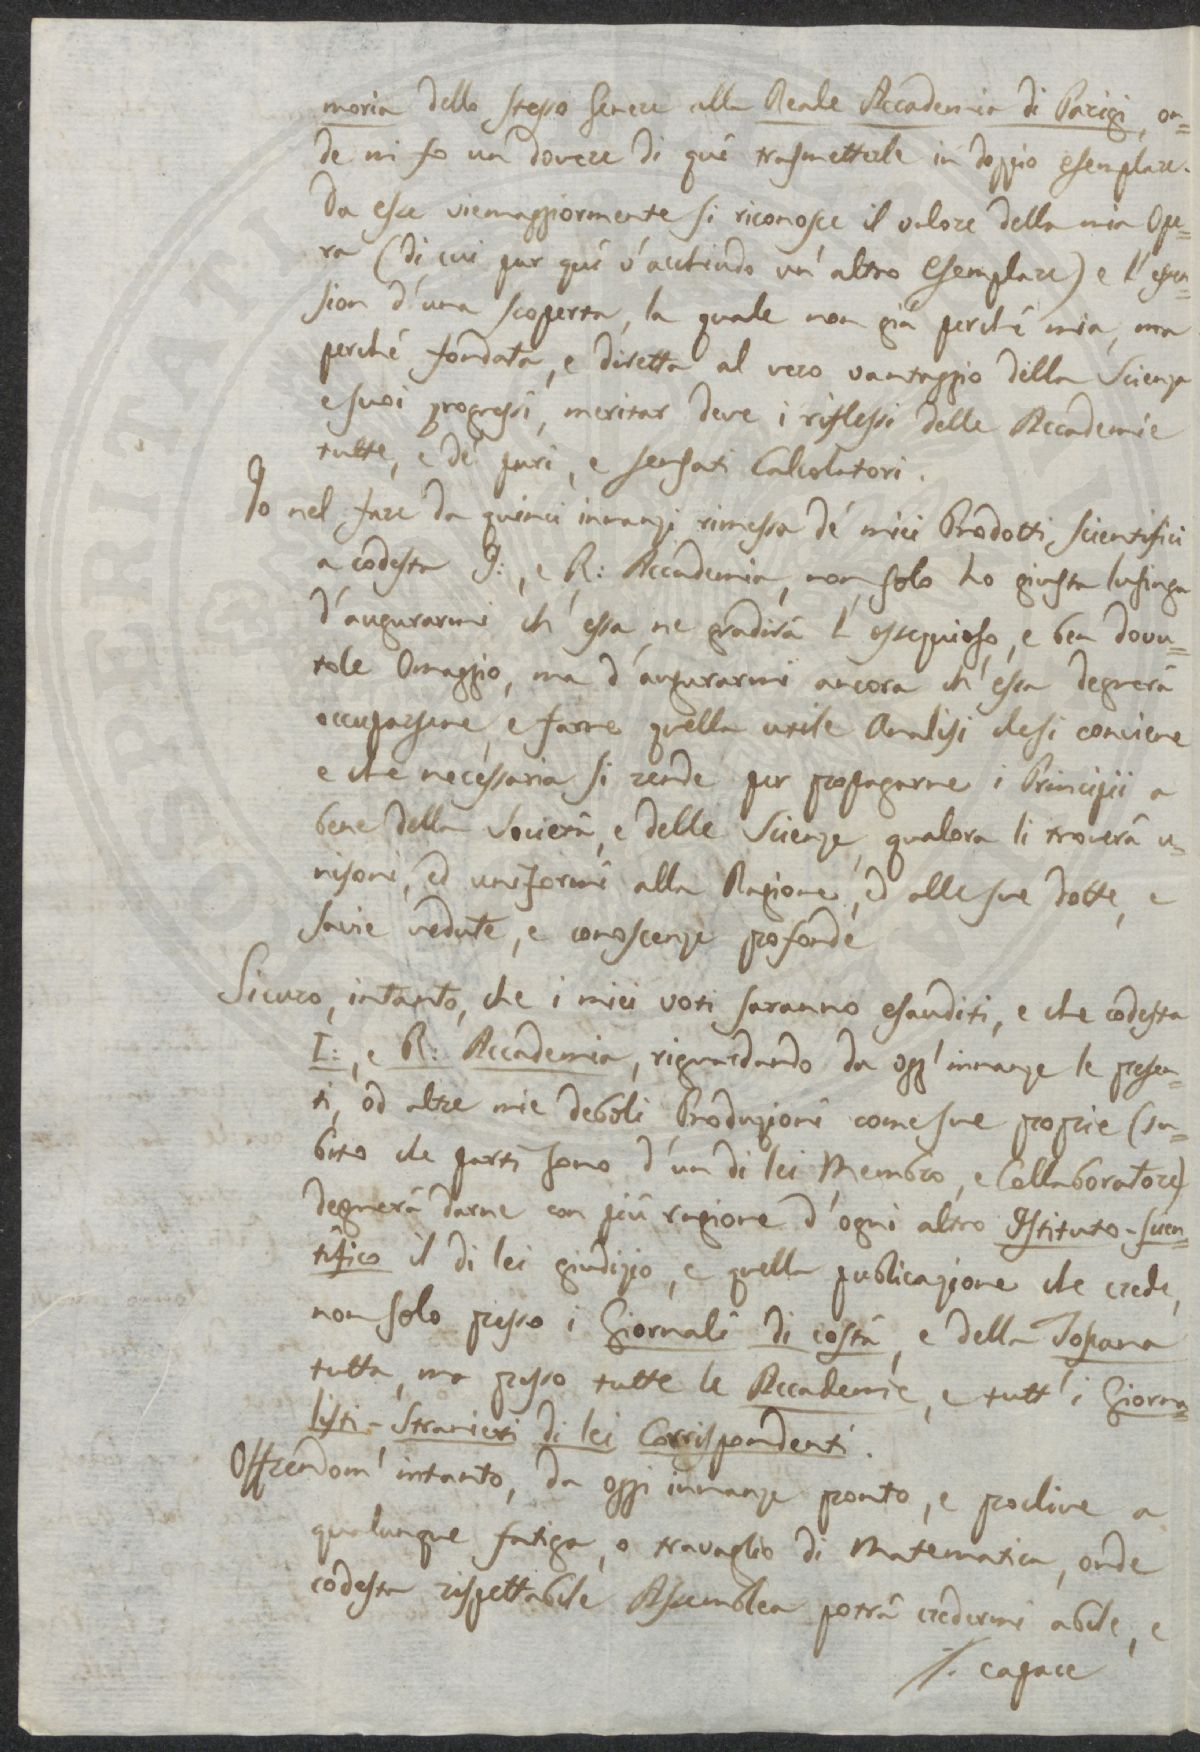 moria dello stesso Genere alla Reale Accademia di Parigi, on=
de mi fo un dovere di quì trasmetterle in doppio esemplare.
Da esse viemaggiormente si riconosce il valore della mia Ope=
ra (di cui pur quì v'acchiudo un' altro Esemplare) e l'
sion d'una scoperta, la quale non già perchè mia, ma
perchè fondata, e diretta al vero vantaggio della Scienza
e suoi progressi, meritar deve i riflessi delle Accademie
tutte, e de' puri, e sensati Calcolatori.
Io nel fare da quinci innanzi rimessa de' miei Prodotti scientifici
a codesta I:, e R: Accademia, non solo ho giusta lusinga
d'augurarmi ch' essa ne gradirà l'ossequioso, e ben dovu=
tole Omaggio, ma d'augurarmi ancora ch' essa degnerà
occuparsene, e farne quella utile Analisi che si conviene
e che necessaria si rende per propagarne i Principii a
bene della Società, e delle Scienze, qualora li troverà u=
nisoni, ed uniformi alla Ragione, ed alle sue dotte, e
savie vedute, e conoscenze profonde
Sicuro, intanto, che i miei voti saranno esauditi, e che codesta
I:, e R: Accademia, riguardando da ogg' innanze le presen=
ti, od altre mie deboli Produzioni come sue proprie (su=
bito che parti sono d'un di lei Membro, e Collaboratore)
degnerà darne con più ragione d'ogni altro Istituto-scien=
tifico il di lei giudizio, e quella publicazione che crede,
non solo presso i Giornali di costà, e della Toscana
tutta, ma presso tutte le Accademie, e tutt' i Giorna=
listi-Stranieri di lei Corrispondenti.
Offrendomi intanto, da oggi innanze pronto, e proclive a
qualunque fatiga, o travaglio di Matematica, onde
codesta rispettabile Assemblea potrà credermi abile, e
capace